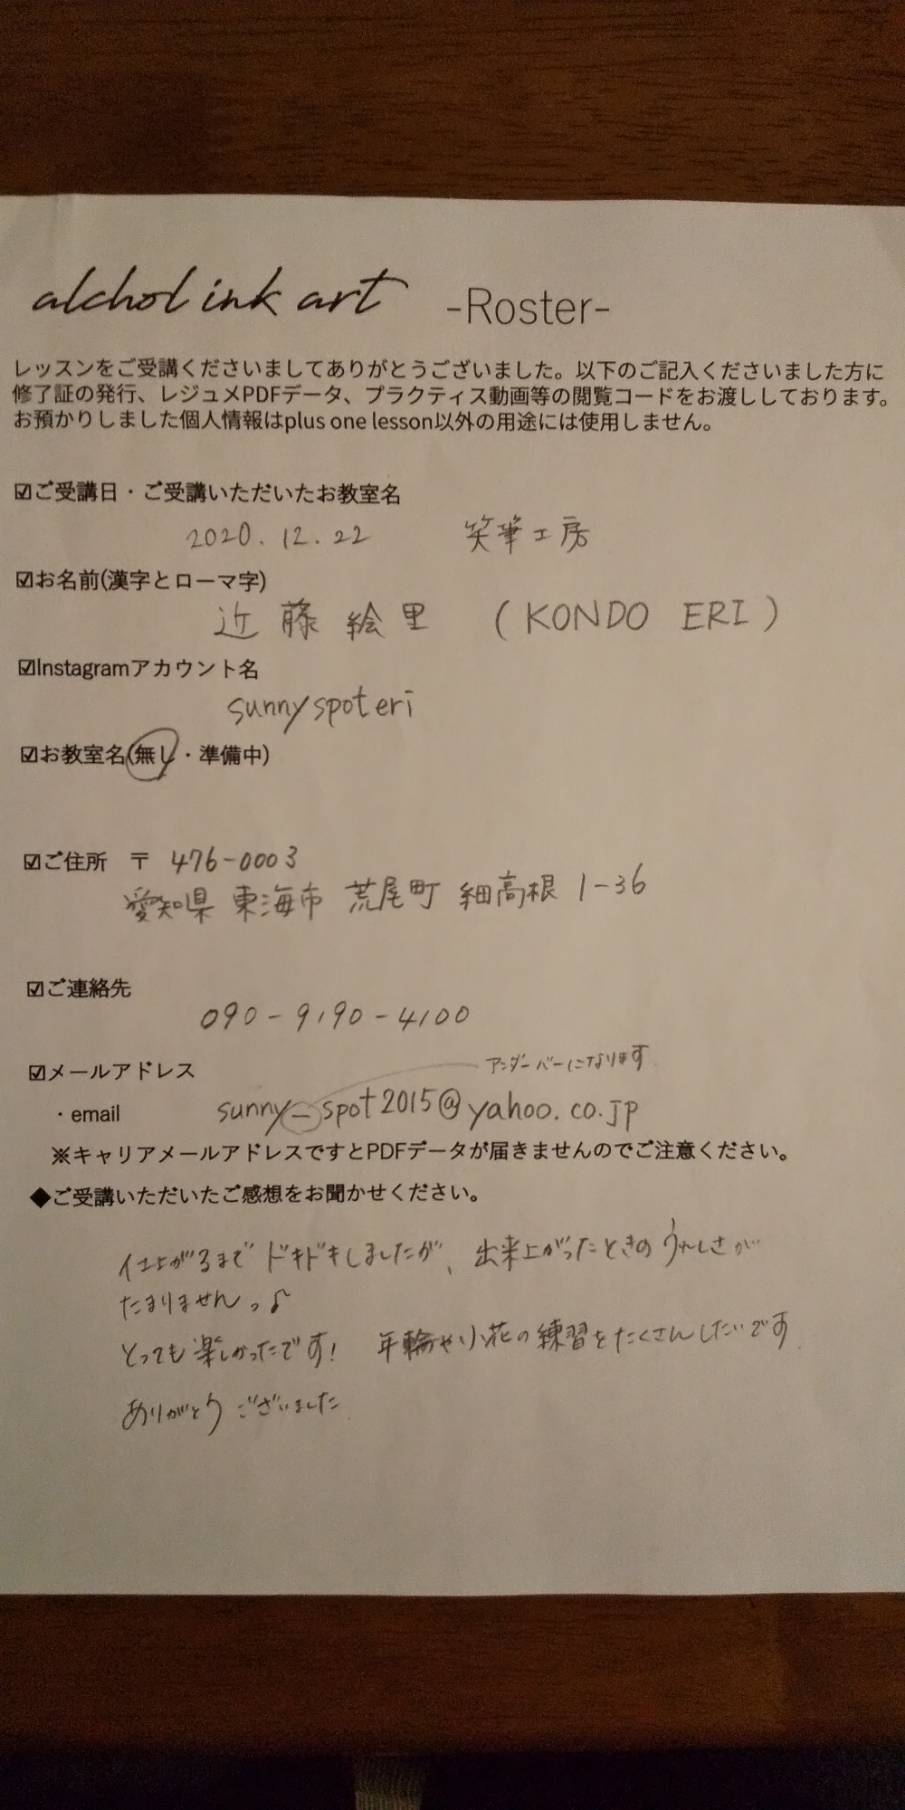 alchol ink art -Roster-
レッスンをご受講くださいましてありがとうございました。以下のご記入くださいました方に
修了証の発行、レジュメPDFデータ、プラクティス動画等の閲覧コードをお渡ししております。
お預かりしました個人情報はplus one lesson以外の用途には使用しません。
☑ご受講日・ご受講いただいたお教室名
2020.12.22 笑筆工房
☑お名前(漢字とローマ字)
近藤絵里 (KONDO ERI)
☑Instagramアカウント名
sunnyspoteri
☑お教室名(無し・準備中)
☑ご住所 〒 476-0003
愛知県 東海市 荒尾町 細高根 1-36
☑ご連絡先
090-9190-4100
☑メールアドレス
アンダーバーになります
・email sunny_spot2015@yahoo.co.jp
※キャリアメールアドレスですとPDFデータが届きませんのでご注意ください。
◆ご受講いただいたご感想をお聞かせください。
仕上がるまでドキドキしましたが、出来上がったときのうれしさが
たまりませんっ♪
とっても楽しかったです! 年輪や小花の練習をたくさんしたいです.
ありがとうございました.